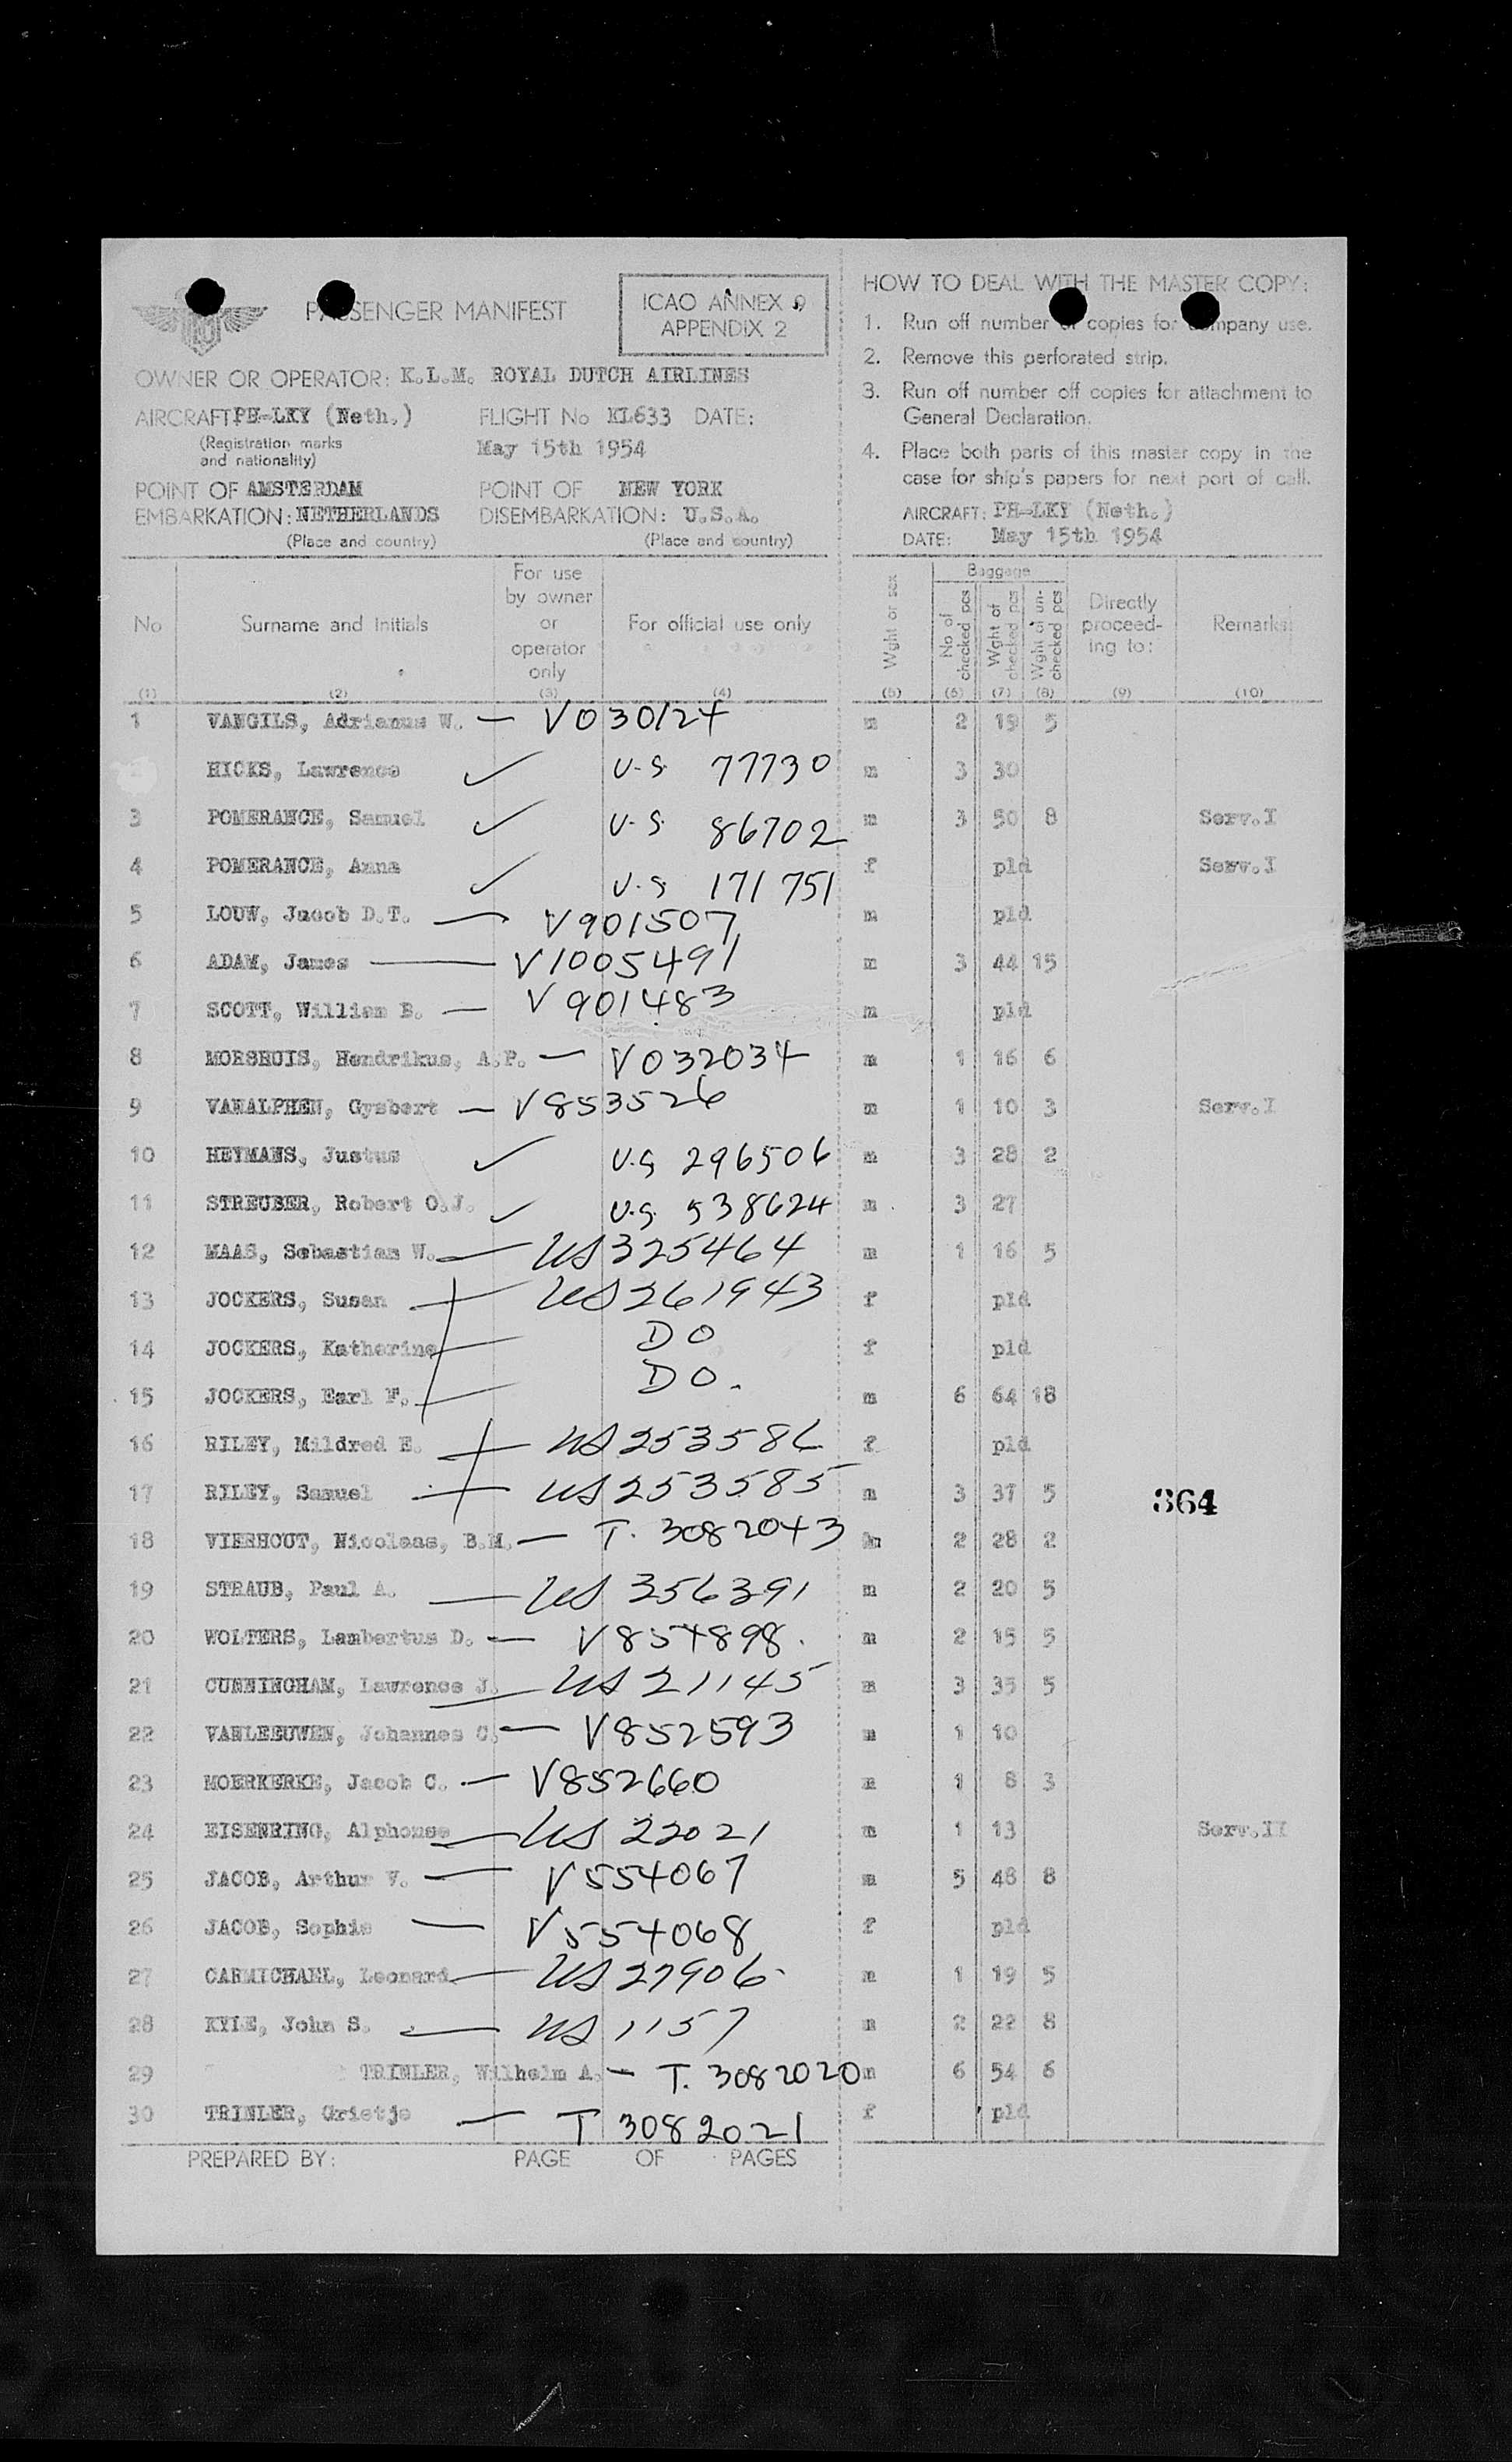 PASSENGER MANIFEST
ICAO ANNEX 9
APPENDIX 2
OWNER OR OPERATOR: K.L.M. ROYAL DUTCH AIRLINES
AIRCRAFT: PH-LKY (Neth.) FLIGHT No KL633 DATE:
(Registration marks
and nationality)
May 15th 1954
POINT OF AMSTERDAM POINT OF NEW YORK
EMBARKATION: NETHERLANDS DISEMBARKATION: U.S.A.
(Place and country) (Place and country)
HOW TO DEAL WITH THE MASTER COPY:
1. Run off number of copies for company use.
2. Remove this perforated strip.
3. Run off number off copies for attachment to
General Declaration.
4. Place both parts of this master copy in the
case for ship's papers for next port of call.
AIRCRAFT: PH-LKY (Neth.)
DATE: May 15th 1954
No Surname and Initials For use by owner or operator only For official use only Wght or sex Baggage No of checked pcs Wght of checked pcs Wght of un-checked pcs Directly proceed-ing to: Remarks
(1) (2) (3) (4) (5) (6) (7) (8) (9) (10)
1 VANGILS, Adrianus W. — V030124 m 2 19 5
HICKS, Lawrence ✓ U.S. 77730 m 3 30
3 POMERANCE, Samuel ✓ U.S. 86702 m 3 50 8 Serv.I
4 POMERANCE, Anna ✓ U.S. 171751 f pld Serv.I
5 LOUW, Jacob D.T. — V901507 m pld
6 ADAM, James — V1005491 m 3 44 15
7 SCOTT, William B. — V901483 m pld
8 MORSHUIS, Hendrikus, A.P. — V032034 m 1 16 6
9 VANALPHEN, Gysbert — V853526 m 1 10 3 Serv.I
10 HEYMANS, Justus ✓ U.S. 296506 m 3 28 2
11 STREUBER, Robert O.J. ✓ U.S. 538624 m 3 27
12 MAAS, Sebastian W. — US 325464 m 1 16 5
13 JOCKERS, Susan — US 261943 f pld
14 JOCKERS, Katherine — DO f pld
15 JOCKERS, Earl F. — DO. m 6 64 18
16 RILEY, Mildred E. — US 253586 f pld
17 RILEY, Samuel — US 253585 m 3 37 5
364
18 VIERHOUT, Nicolaas, B.M. — T. 3082043 m 2 28 2
19 STRAUB, Paul A. — US 356391 m 2 20 5
20 WOLTERS, Lambertus D. — V854898. m 2 15 5
21 CUNNINGHAM, Lawrence J. — US 21145 m 3 35 5
22 VANLEEUWEN, Johannes C. — V852593 m 1 10
23 MOERKERKE, Jacob C. — V852660 m 1 8 3
24 EISENRING, Alphonse — US 22021 m 1 13 Serv.II
25 JACOB, Arthur V. — V554067 m 5 48 8
26 JACOB, Sophie — V554068 f pld
27 CARMICHAEL, Leonard — US 27906 m 1 19 5
28 KYLE, John S. — US 1157 m 2 22 8
29 TRINLER, Wilhelm A. — T. 3082020 m 6 54 6
30 TRINLER, Grietje — T 3082021 f pld
PREPARED BY: PAGE OF PAGES